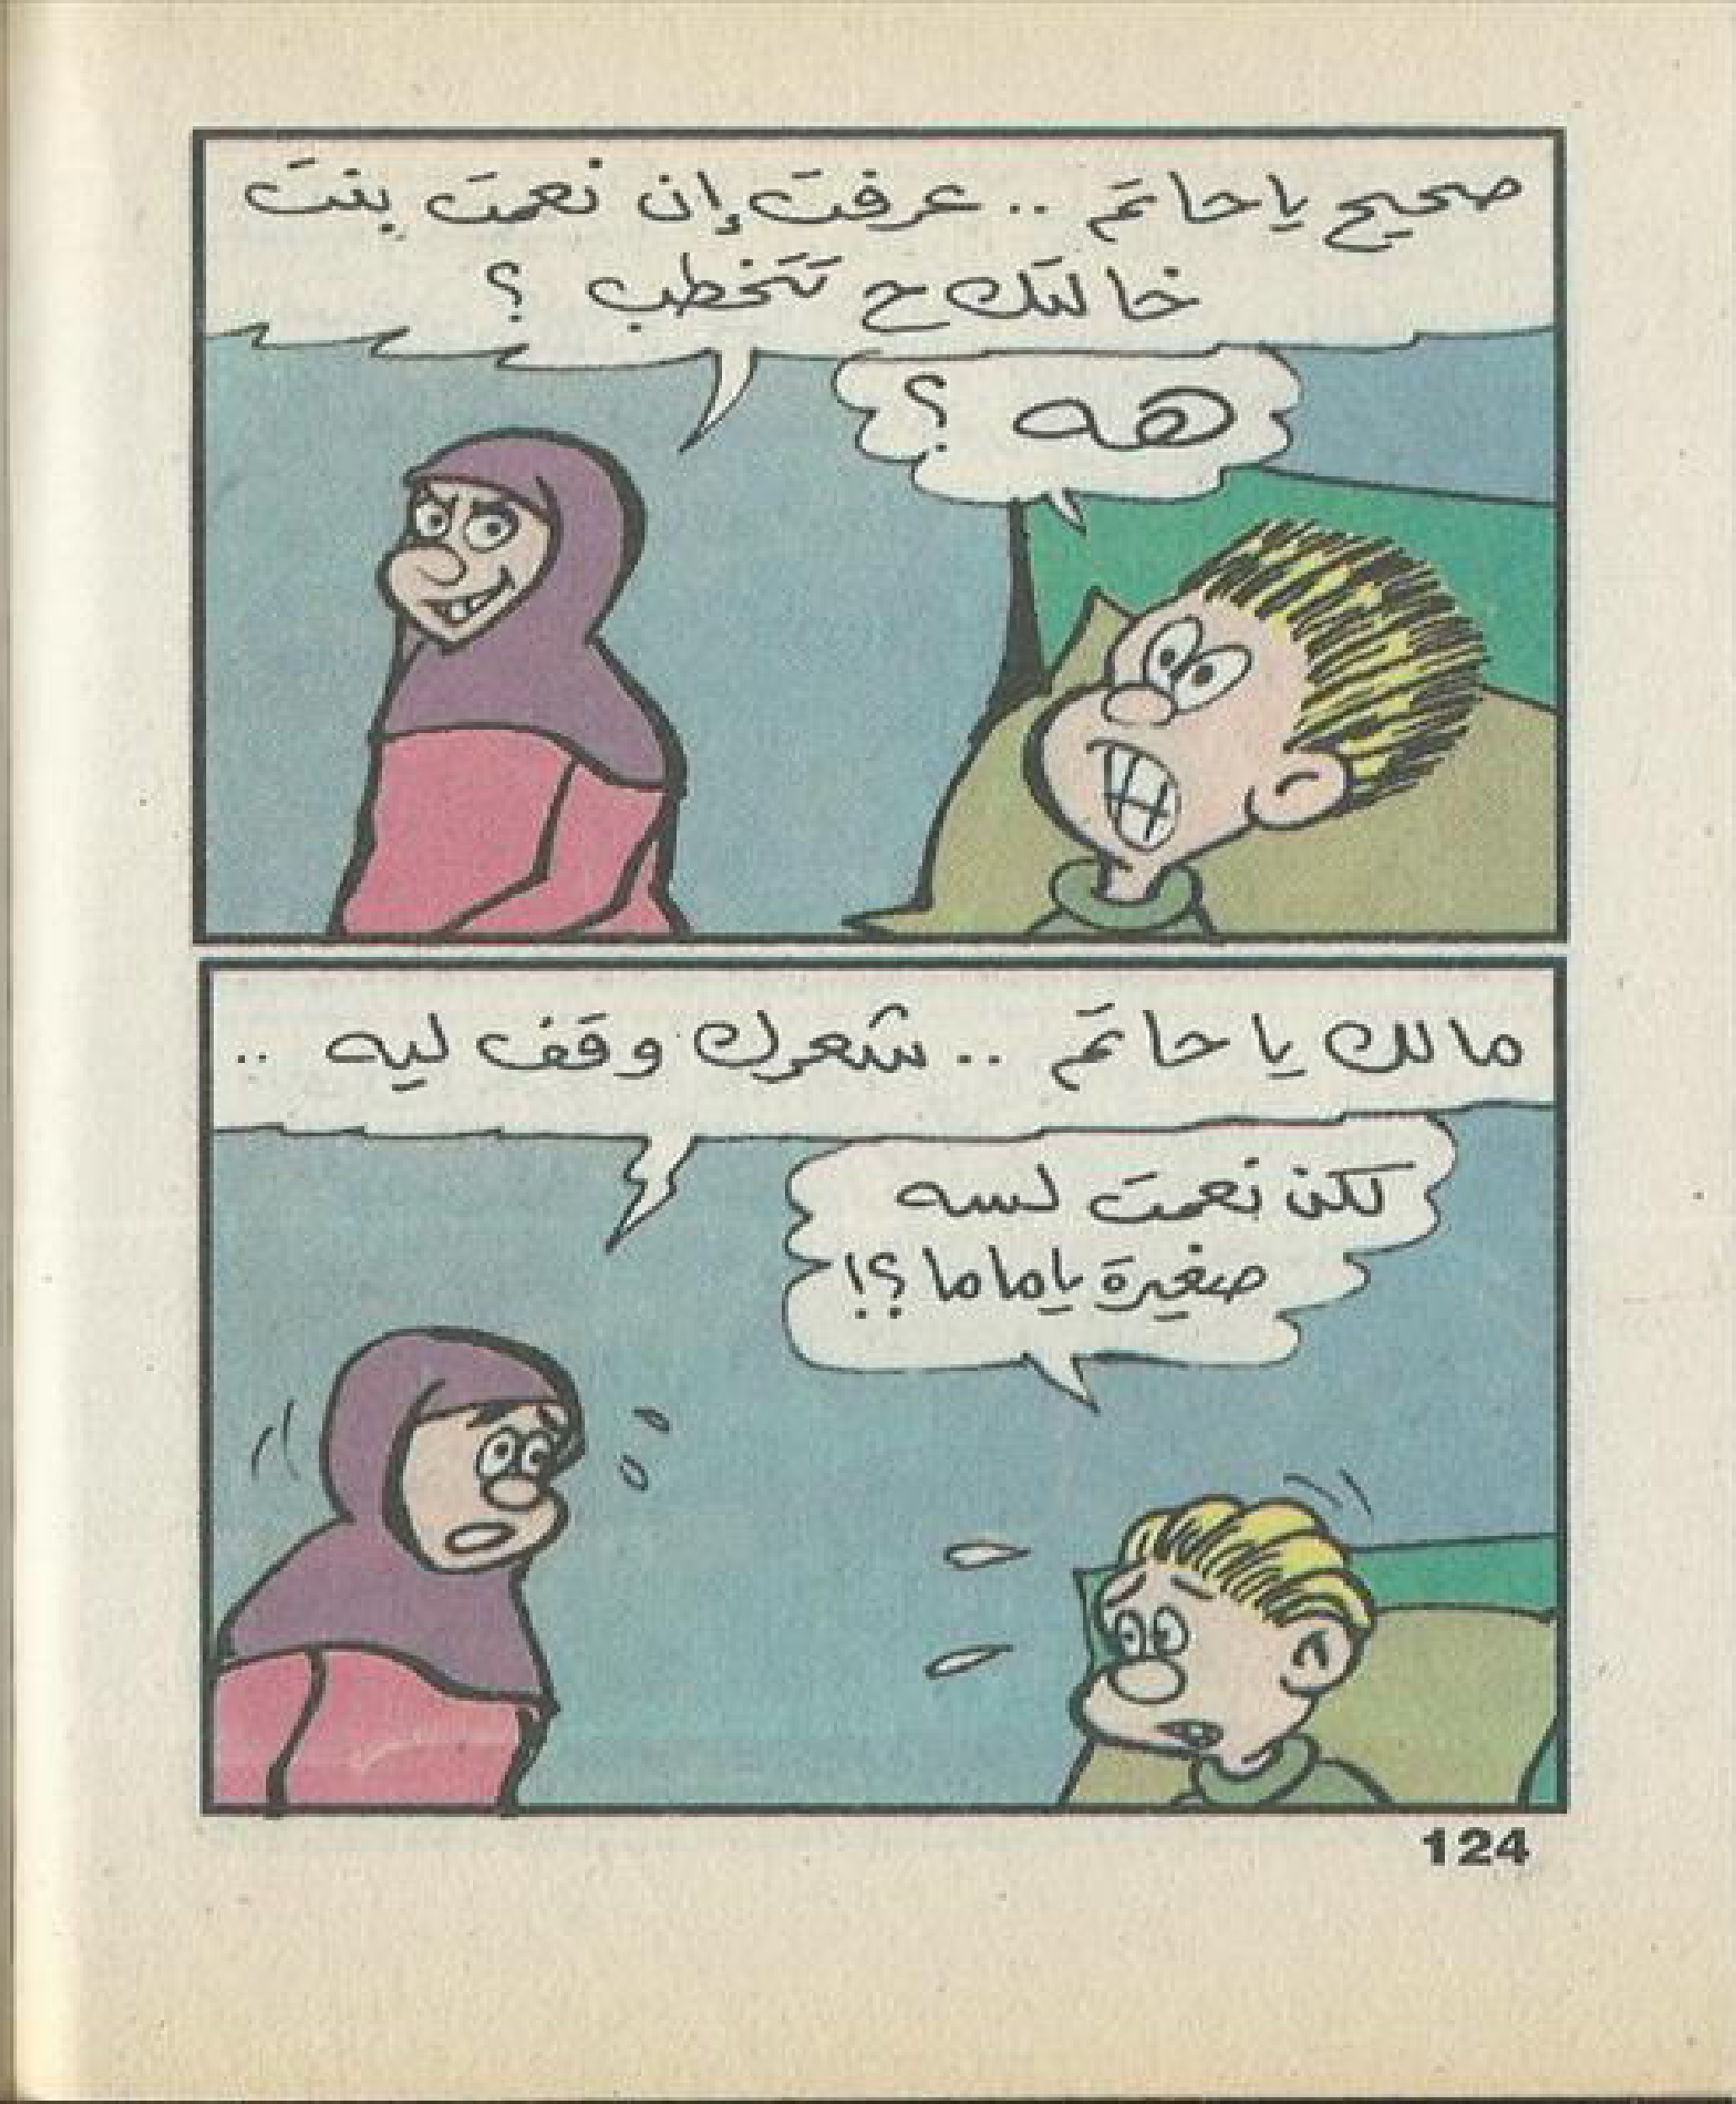 صحيح ياحاتم .. عرفت إن نعمت بنت
خالتك ح تتخطب ؟
هه ؟
مالك يا حاتم .. شعرك وقف ليه ..
لكن نعمت لسه
صغيرة ياماما ؟!
124